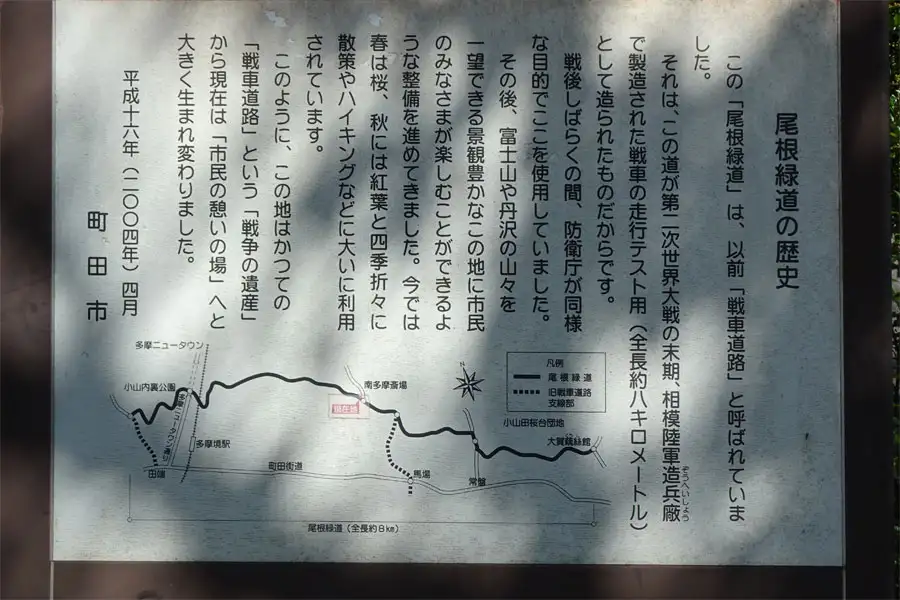 尾根緑道の歴史
この「尾根緑道」は、以前「戦車道路」と呼ばれていま
した。
それは、この道が第二次世界大戦の末期、相模陸軍造兵廠
ぞうへいしょう
で製造された戦車の走行テスト用（全長約八キロメートル）
として造られたものだからです。
戦後しばらくの間、防衛庁が同様
な目的でここを使用していました。
その後、富士山や丹沢の山々を
一望できる景観豊かなこの地に市民
のみなさまが楽しむことができるよ
うな整備を進めてきました。今では
春は桜、秋には紅葉と四季折々に
散策やハイキングなどに大いに利用
されています。
このように、この地はかつての
「戦車道路」という「戦争の遺産」
から現在は「市民の憩いの場」へと
大きく生まれ変わりました。
平成十六年（二〇〇四年）四月
町田市
多摩ニュータウン
小山内裏公園
多摩ニュータウン通り
多摩境駅
田端
町田街道
南多摩斎場
現在地
馬場
常盤
小山田桜台団地
大賀藕絲館
凡例
尾根緑道
旧戦車道路
支線部
尾根緑道（全長約8km）